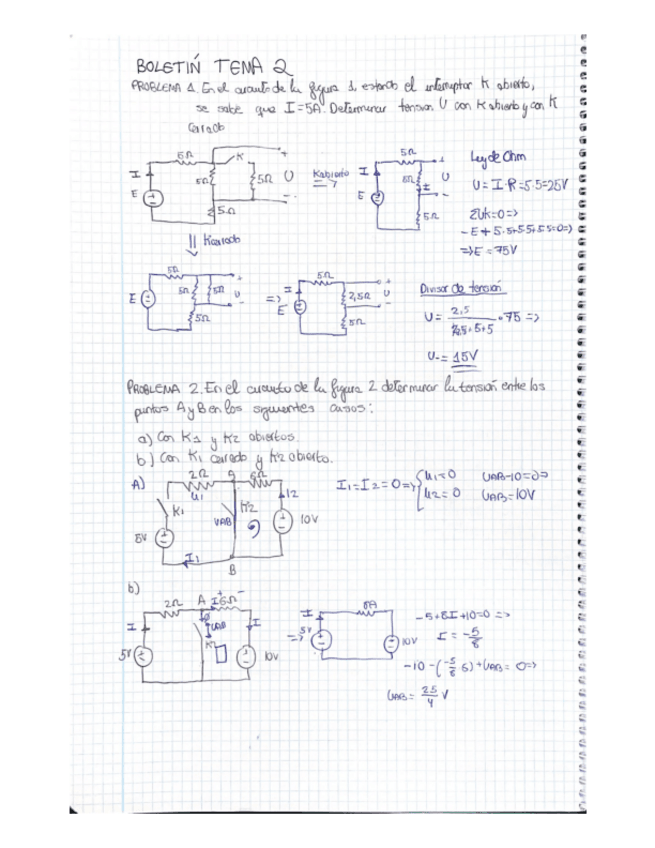 BOLETIN TEMA 2
PROBLEMA 1. En el circuito de la figura 1, estando el interruptor K abierto,
se sabe que I=5A. Determinar tension U con K abierto y con K
cerrado
5Ω K +
I 5Ω 5Ω U
E -
5Ω
K abierto =>
5Ω +
I 5Ω U
E -
5Ω
Ley de Ohm
U = I·R = 5·5 = 25V
ΣUk=0 =>
-E + 5·5+5·5+5·5=0 =>
=> E = 75V
K cerrado
5Ω +
E 5Ω 5Ω U
-
5Ω
=>
5Ω
I 2,5Ω U
E
5Ω
Divisor de tensión
U = 2,5 / 2,5+5+5 · 75 =>
U = 15V
PROBLEMA 2. En el circuito de la figura 2 determinar la tension entre los
puntos A y B en los siguientes casos:
a) Con K1 y K2 abiertos.
b) Con K1 cerrado y K2 abierto.
A)
2Ω 6Ω
U1 I2
K1 K2
UAB 10V
5V
I1
B
I1=I2=0 => U1=0 UAB-10=0 =>
U2=0 UAB=10V
b)
2Ω A I 6Ω
I UAB I
K2
5V 10V
=>
I 8Ω
5V 10V
-5+8I+10=0 =>
I = -5/8
-10-(-5/8 6)+UAB = 0 =>
UAB = 25/4 V